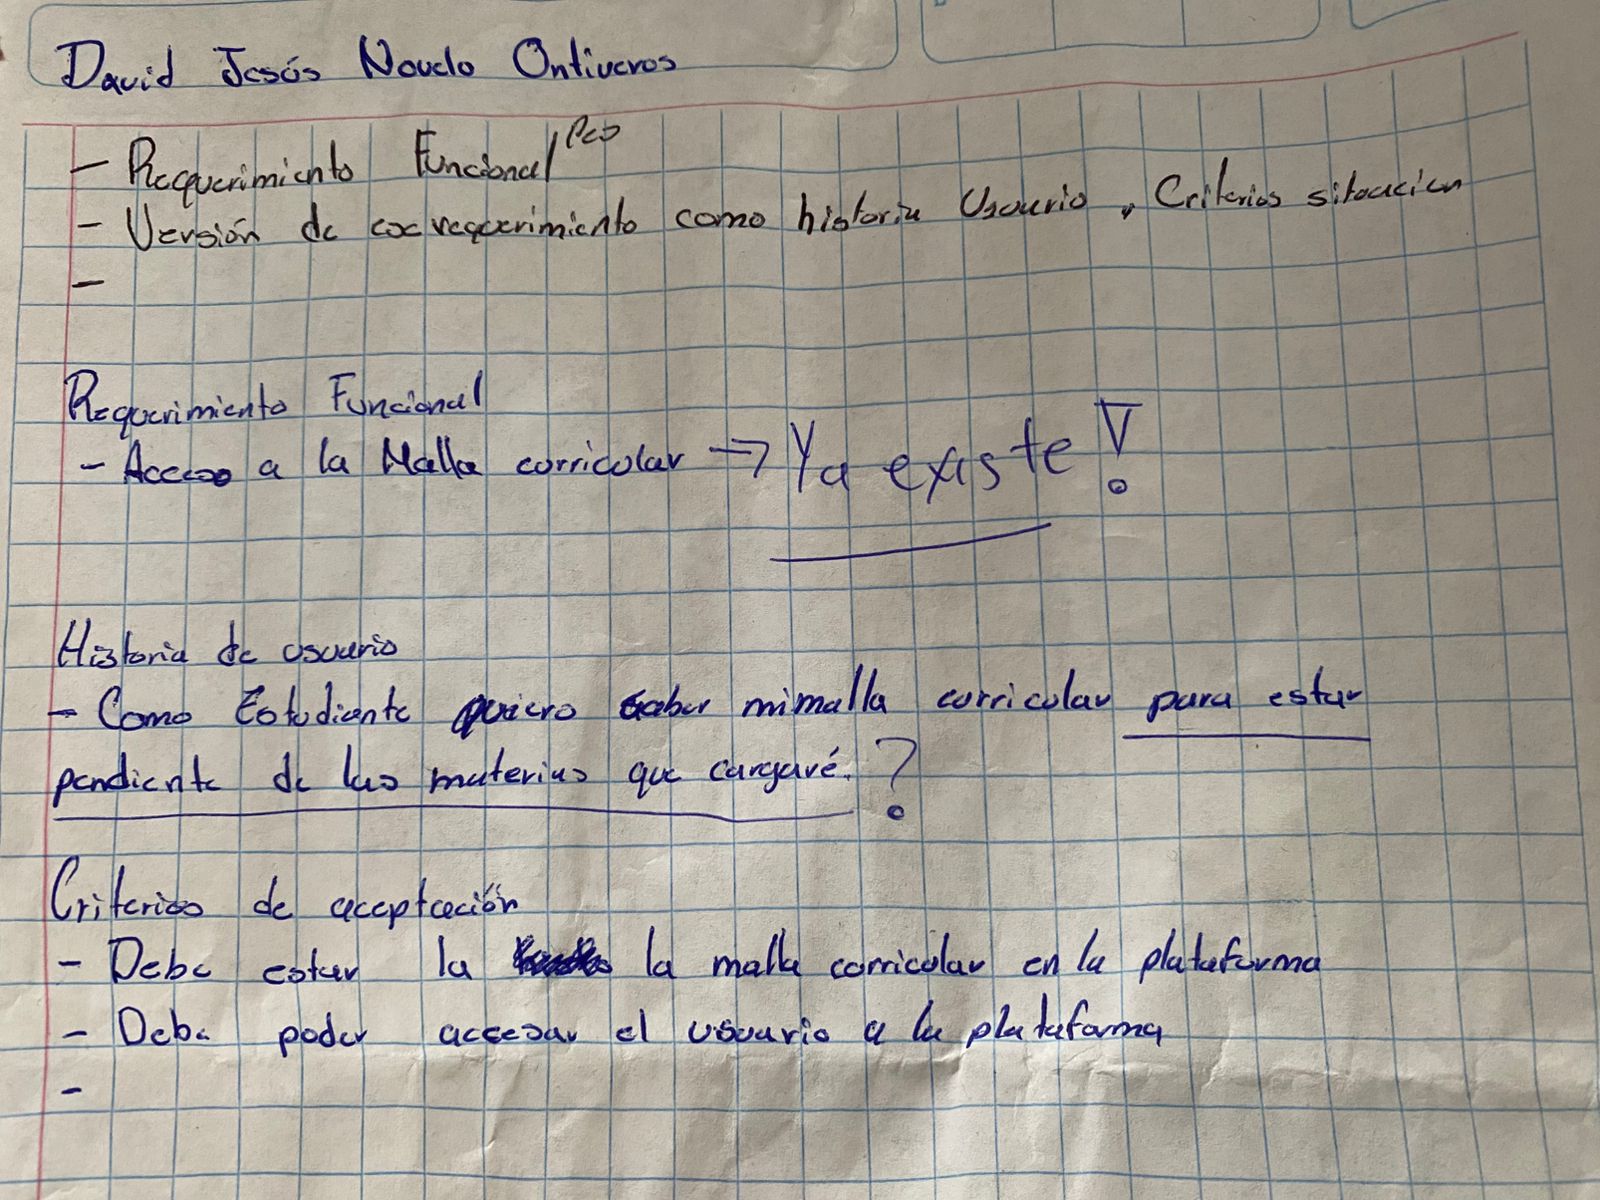 David Jesús Novelo Ontiveros
- Requerimiento Funcional
- Versión de requerimiento como historia Usuario, Criterios situación
-
Requerimiento Funcional
- Acceso a la Malla corricular → Ya existe!
Historia de usuario
- Como Estudiante quiero saber mi malla corricular para estar
pendiente de las materias que cargaré. ?
Criterios de aceptación
- Debe estar la la malla corricular en la plataforma
- Debe poder accesar el usuario a la plataforma
-